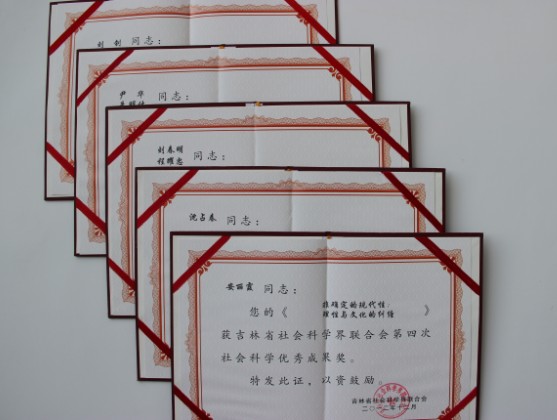 刘 剑 同志：
尹 华
同志：
刘春明
程耀忠
同志：
沈占春 同志：
安丽霞 同志：
您的《 难确定的现代性：
理性与文化的纠缠 》
获吉林省社会科学界联合会第四次
社会科学优秀成果奖。
特发此证，以资鼓励。
吉林省社会科学界联合会
二〇一二年十二月